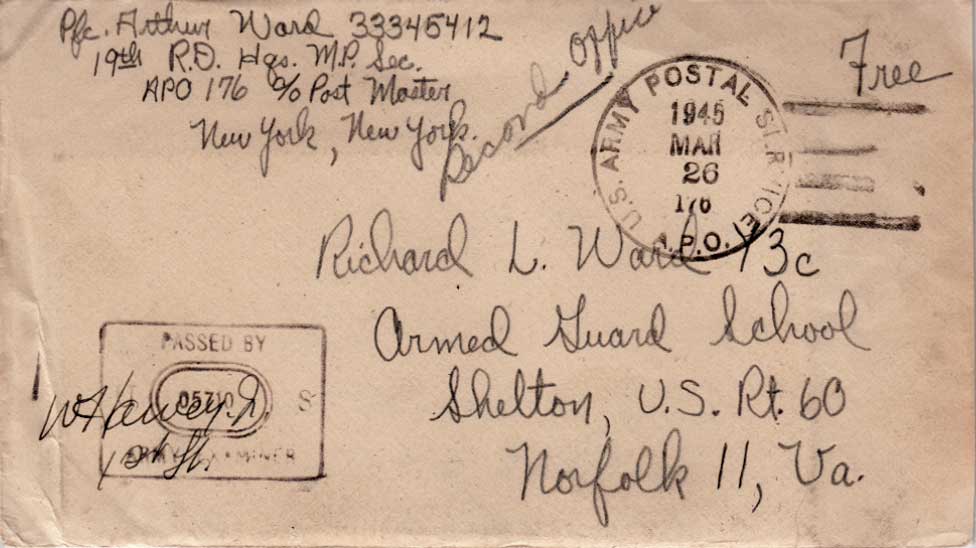 Pfc. Arthur Ward 33345412
19th R.D. Hqs. M.P. Sec.
APO 176 c/o Post Master
New York, New York.
Second Office
Free
U.S. ARMY POSTAL SERVICE
1945
MAR
26
176
A.P.O.
Richard L. Ward 13c
Armed Guard School
Shelton, U.S. Rt. 60
Norfolk 11, Va.
PASSED BY
S
ARMY EXAMINER